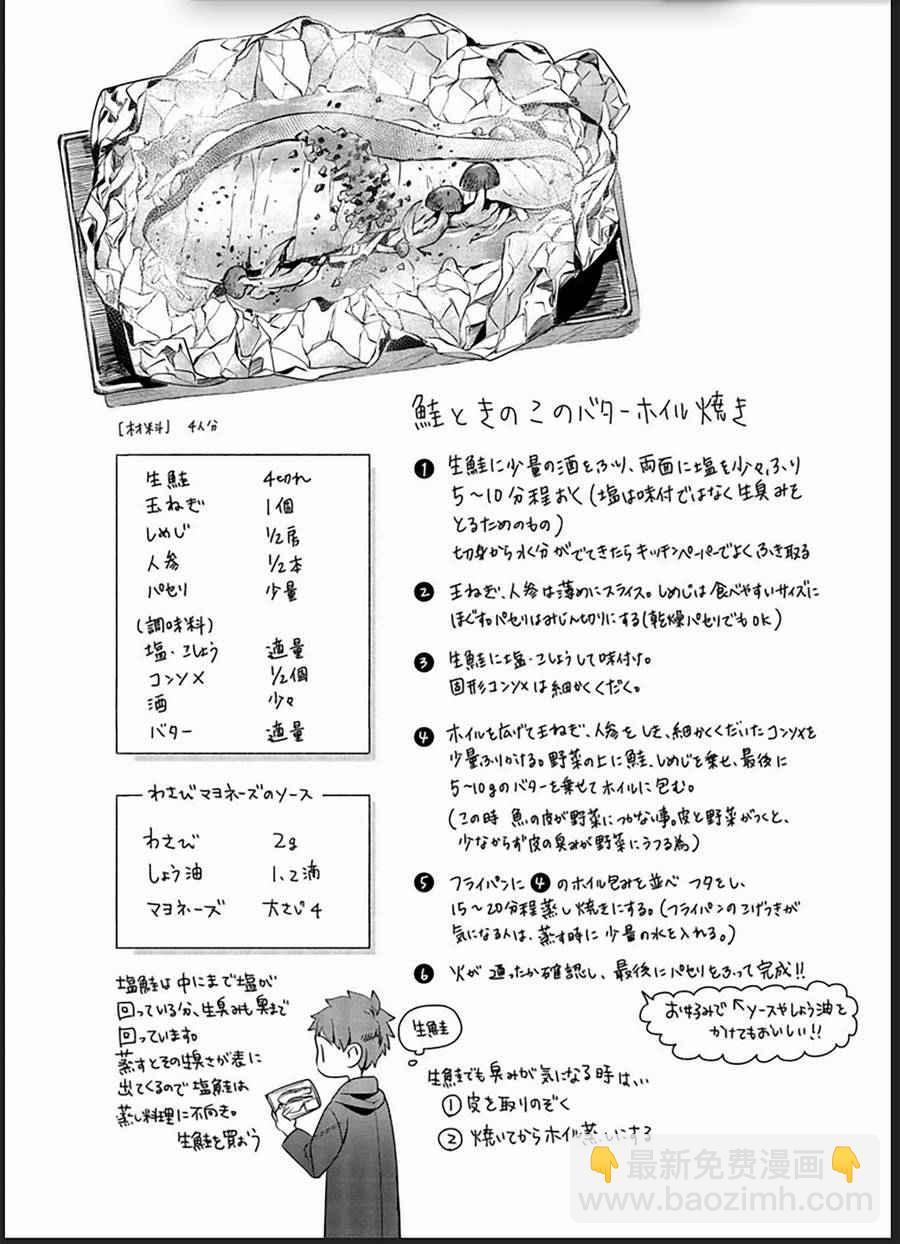 鮭ときのこのバターホイル焼き
[材料] 4人分
生鮭 4切れ
玉ねぎ 1個
しめじ 1/2房
人参 1/2本
パセリ 少量
(調味料)
塩・こしょう 適量
コンソメ 1/2個
酒 少々
バター 適量
わさびマヨネーズのソース
わさび 2g
しょう油 1、2滴
マヨネーズ 大さじ4
塩鮭は中にまで塩が
回っている分、生臭みも奥まで
回っています。
蒸すとその臭さが表に
出てくるので塩鮭は
蒸し料理に不向き。
生鮭を買おう
❶ 生鮭に少量の酒をふり、両面に塩を少々ふり
5〜10分程おく(塩は味付ではなく生臭みを
とるためのもの)
切身から水分がでてきたらキッチンペーパーでよくふき取る
❷ 玉ねぎ、人参は薄めにスライス。しめじは食べやすいサイズに
ほぐす。パセリはみじん切りにする(乾燥パセリでもOK)
❸ 生鮭に塩・こしょうして味付け。
固形コンソメは細かくくだく。
❹ ホイルを広げて玉ねぎ、人参をしき、細かくくだいたコンソメを
少量ふりかける。野菜の上に鮭、しめじを乗せ、最後に
5〜10gのバターを乗せてホイルに包む。
(この時 魚の皮が野菜につかない事。皮と野菜がつくと、
少なからず皮の臭みが野菜にうつる為)
❺ フライパンに❹のホイル包みを並べ フタをし、
15〜20分程蒸し焼きにする。(フライパンのこげつきが
気になる人は、蒸す時に少量の水を入れる。)
❻ 火が通ったか確認し、最後にパセリをふって完成!!
お好みで←ソースやしょう油を
かけてもおいしい!!
生鮭
生鮭でも臭みが気になる時は、、、
① 皮を取りのぞく
② 焼いてからホイル蒸しにする
👇最新免费漫画👇
www.baozimh.com